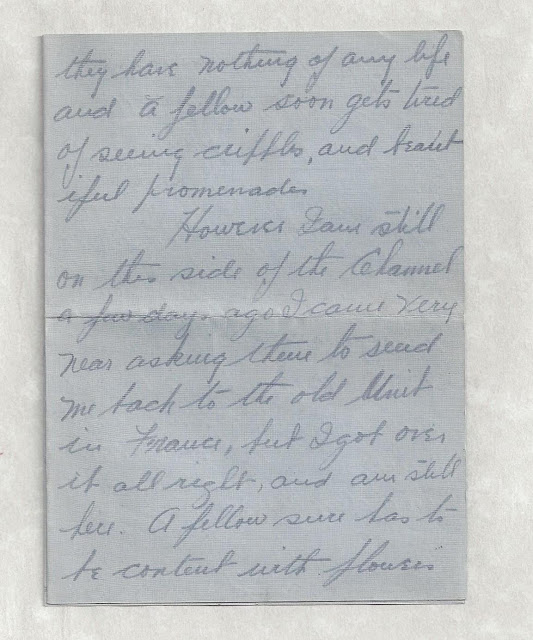 they have nothing of any life
and a fellow soon gets tired
of seeing cripples, and beaut
iful promenades
However I am still
on this side of the Channel
a few days ago I came very
near asking them to send
me back to the old Unit
in France, but I got over
it all right, and am still
here. A fellow sure has to
be content with flowers